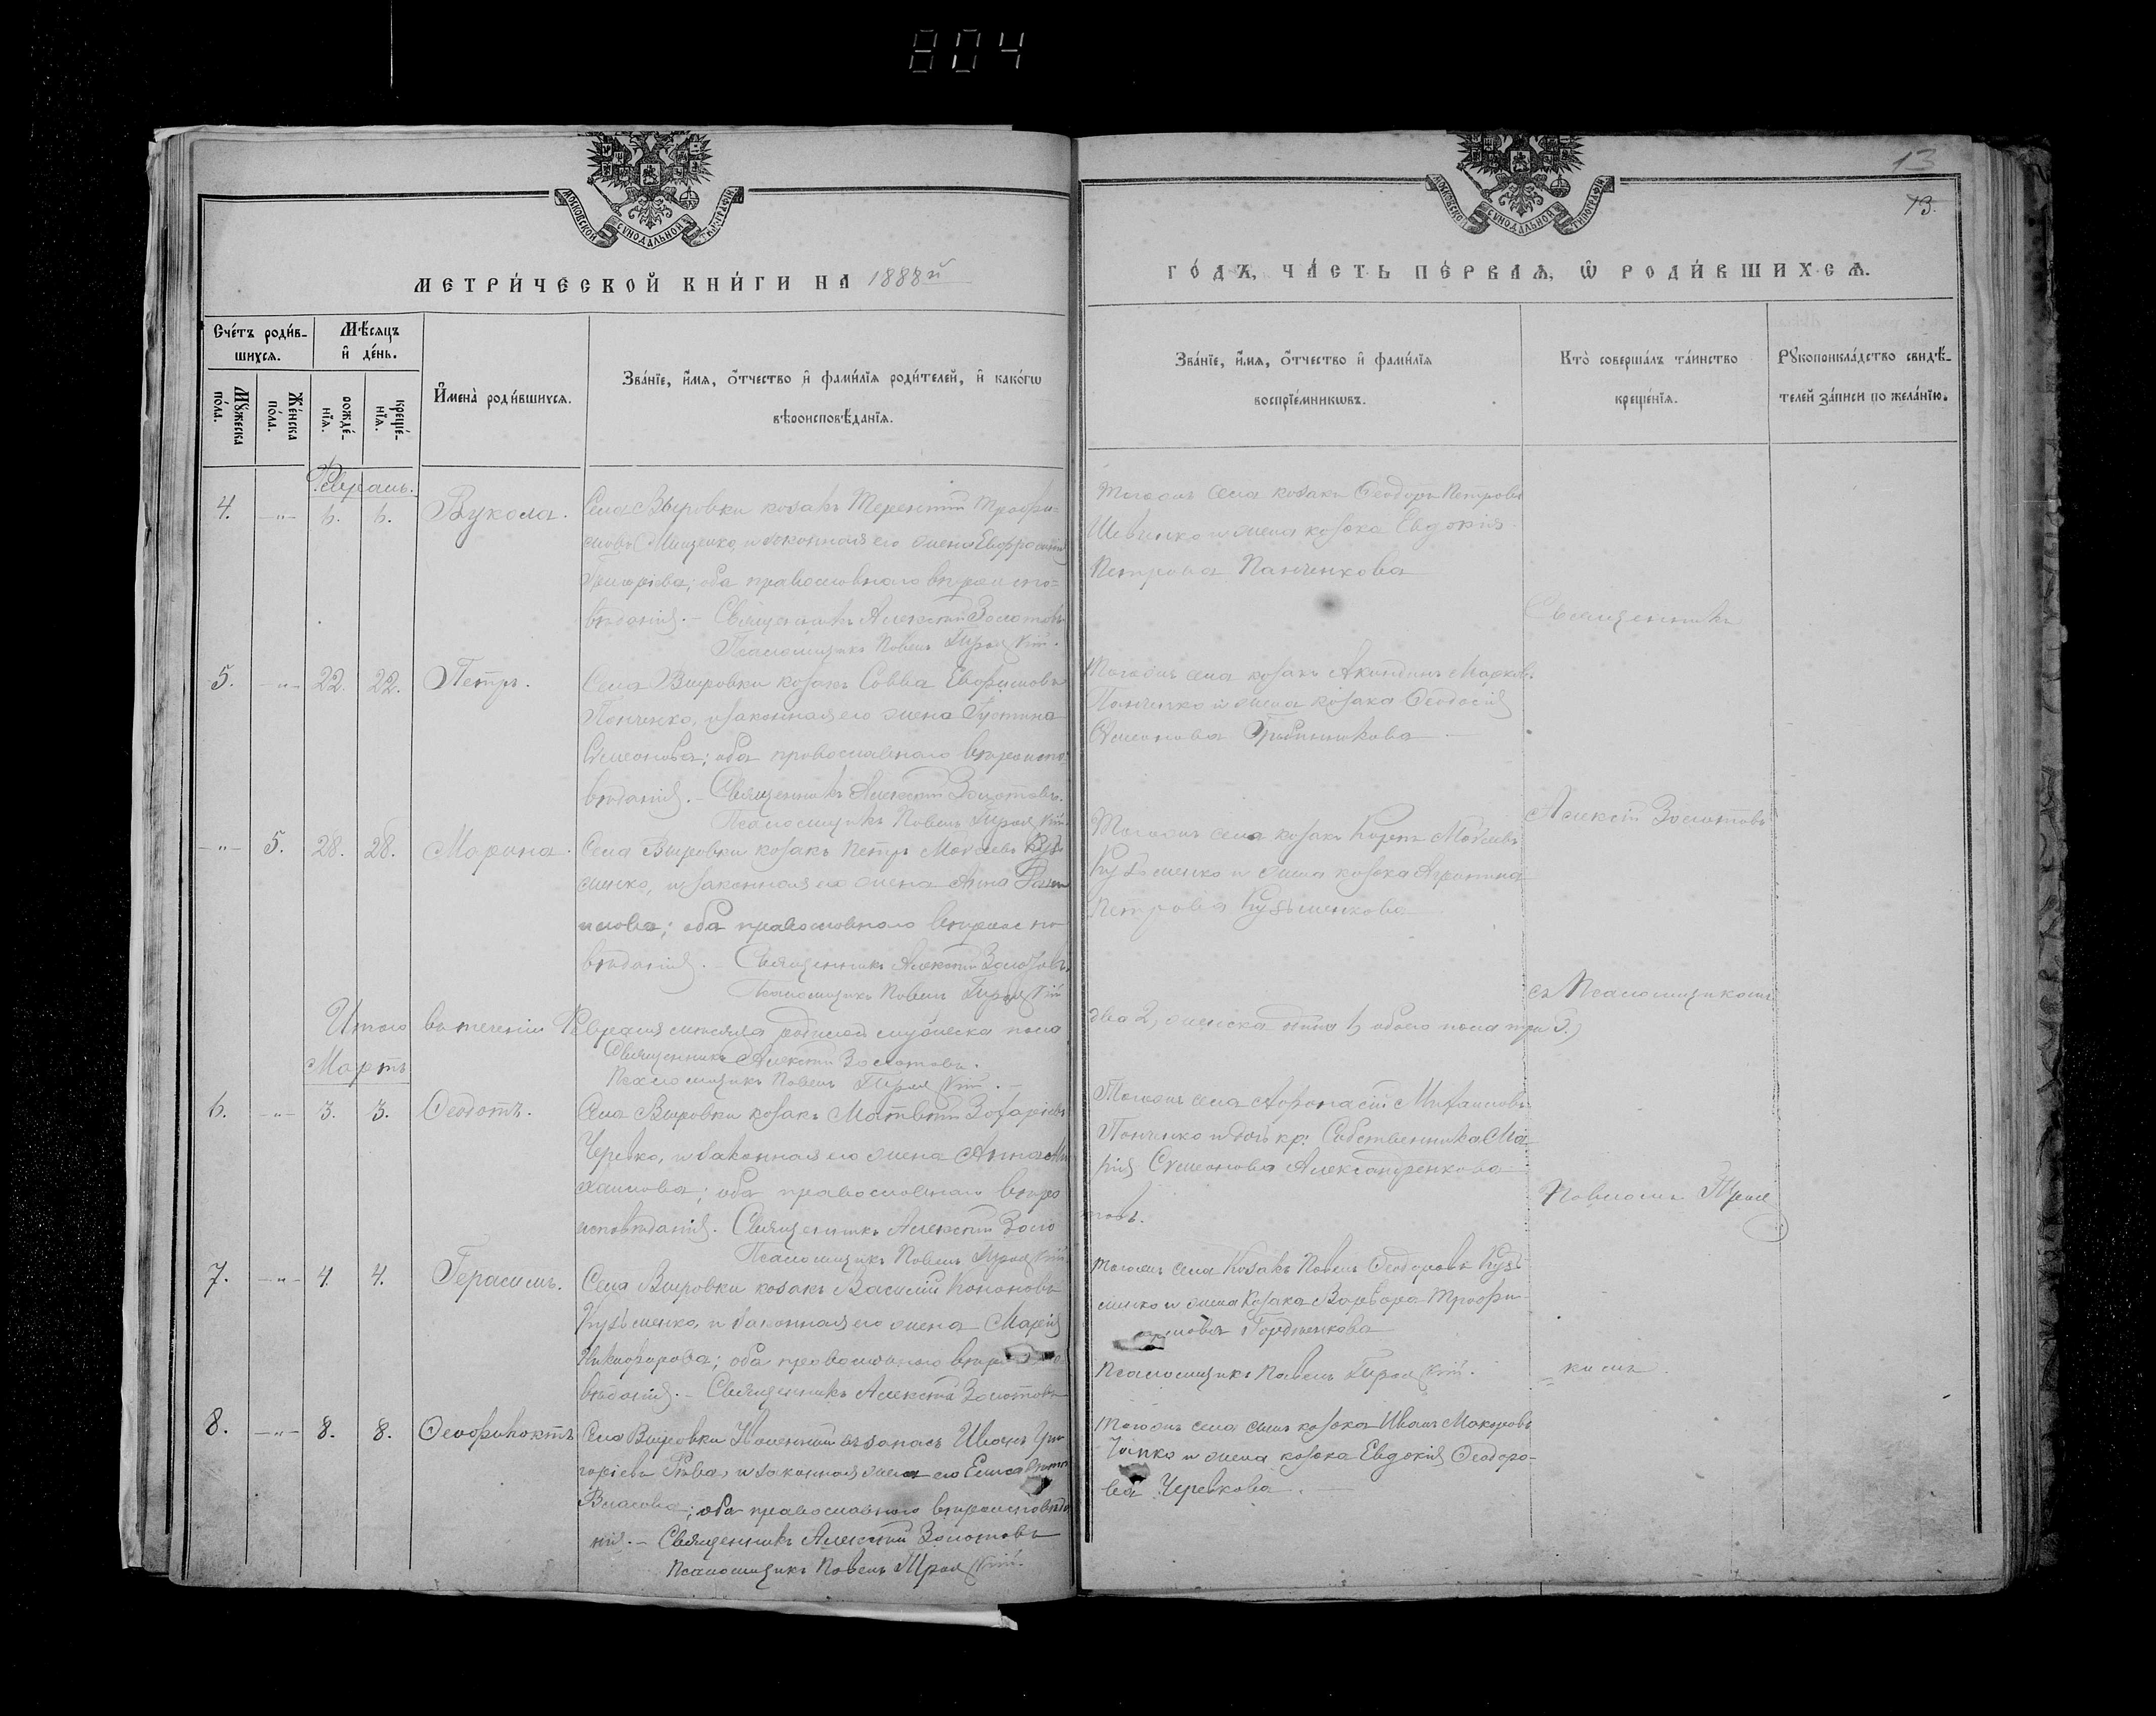 804
13
13.
МОСКОВСКОЙ СѴНОДАЛЬНОЙ ТИПОГРАФІИ
МОСКОВСКОЙ СѴНОДАЛЬНОЙ ТИПОГРАФІИ
МЕТРИ́ЧЕСКОЙ КНИ́ГИ НА 1888й
ГО́ДЪ, ЧА́СТЬ ПЕ́РВАѦ, Ѿ РОДИ́ВШИХСѦ.
Сче́тъ роди́в-
шихсѧ.
Мѣ́сѧцъ
и҆ де́нь.
Мꙋ́жеска по́ла.
Же́нска по́ла.
рожде́-
нїѧ.
креще́-
нїѧ.
И҆мена̀ роди́вшихсѧ.
Зва́нїе, и҆́мѧ, ѻ҆́тчество и҆ фами́лїѧ роди́телей, и҆ како́гѡ
вѣроисповѣ́данїѧ.
Зва́нїе, и҆́мѧ, ѻ҆́тчество и҆ фами́лїѧ
воспрїе́мникѡвъ.
Кто̀ соверша́лъ та́инство
креще́нїѧ.
Рꙋкоприкла́дство свидѣ́-
телей за́писи по жела́нїю.
Февраль.
4. -"- 6. 6. Вукола.
Села Вировки козакъ Терентій Трофи-
мовъ Мищенко, и законная его жена Евфросинія
Григоріева; оба православнаго вѣроиспо-
вѣданія. - Священникъ Алексій Золотовъ
Псаломщикъ Павелъ
Тогожъ села козакъ Ѳеодоръ Петровъ
Шевченко и жена козака Евдокія
Петрова Панченкова
Священникъ
5. -"- 22. 22. Петръ.
Села Вировки козакъ Савва Евфимовъ
Панченко, и законная его жена Іустина
Симеонова; оба православнаго вѣроиспо-
вѣданія. - Священникъ Алексій Золотовъ.
Псаломщикъ Павелъ
Тогожъ села козакъ Акиндинъ Марковъ
Панченко и жена козака Ѳеодосія
Симеонова
Алексій Золотовъ
-"- 5. 28. 28. Марина.
Села Вировки козакъ Петръ Моѵсеевъ Кузь-
менко, и законная его жена Анна
оба православнаго вѣроиспо-
вѣданія. - Священникъ Алексій Золотовъ
Псаломщикъ Павелъ
Тогожъ села козакъ Карпъ Моѵсеевъ
Кузьменко и жена козака Агрипина
Петрова Кузьменкова
съ Псаломщикомъ
Итого въ теченіи Февраля мѣсяца родилось мужеска пола
два 2, женска одна 1, обоего пола три 3,
Священникъ Алексій Золотовъ.
Псаломщикъ Павелъ
Мартъ
6. -"- 3. 3. Ѳеодотъ.
Села Вировки козакъ Матвѣй Захаріевъ
Черевко, и законная его жена Анна Ми-
хаилова; оба православнаго вѣро
исповѣданія. Священникъ Алексій Золо
товъ.
Псаломщикъ Павелъ
Тогожъ села Аѳанасій Михаиловъ
Панченко и дочь кр: Собственника Ма-
рія Симеонова Александренкова
Павломъ
7. -"- 4. 4. Герасимъ.
Села Вировки козакъ Василій Кононовъ
Кузьменко, и законная его жена Марія
Никифорова; оба православнаго
вѣданія. - Священникъ Алексій Золотовъ
Псаломщикъ Павелъ
Тогожъ села Козакъ Павелъ Ѳеодоровъ Кузь-
менко и жена Козака Варвара Трофи-
мова Гордіенкова
кимъ.
8. -"- 8. 8. Ѳеофилактъ
Села Вировки Уволенный въ запасъ Иванъ Гри-
горіевъ и законная жена его Елисавета
Власова; оба православнаго вѣроисповѣда
нія. - Священникъ Алексій Золотовъ
Псаломщикъ Павелъ
Тогожъ села сынъ козака Иванъ Макаровъ
и жена козака Евдокія Ѳеодоро-
ва Черевкова.